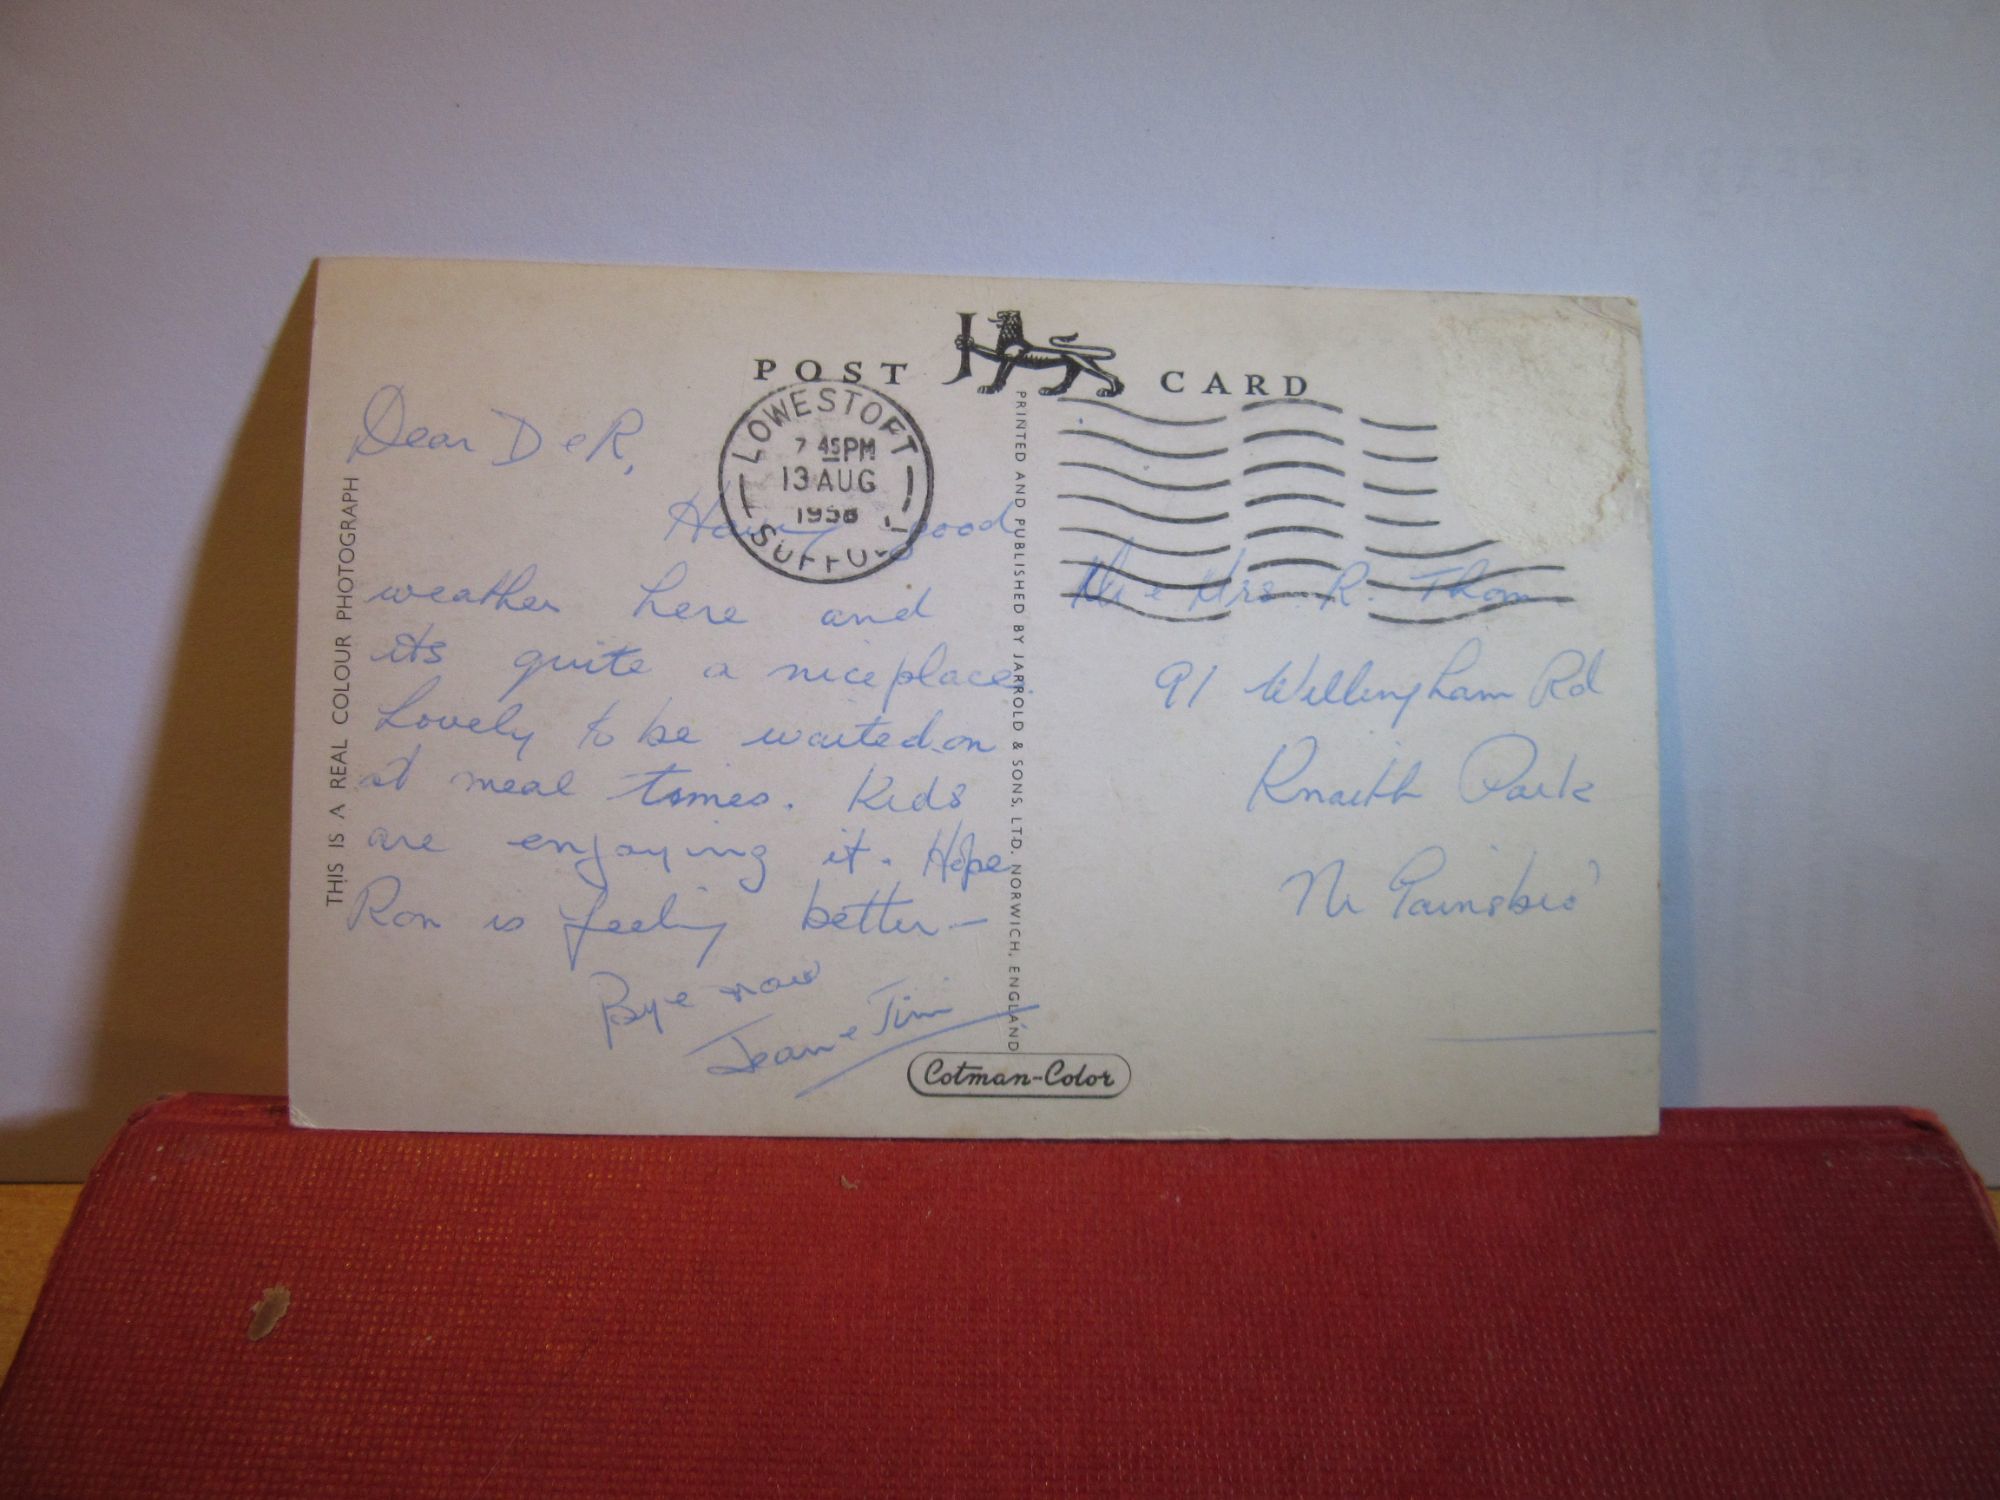 POST J CARD
LOWESTOFT
7 45PM
13 AUG
1958
SUFFOLK
THIS IS A REAL COLOUR PHOTOGRAPH
PRINTED AND PUBLISHED BY JARROLD & SONS, LTD. NORWICH, ENGLAND
Dear D e R,
Having good
weather here and
its quite a nice place.
Lovely to be waited on
at meal times. Kids
are enjoying it. Hope
Ron is feeling better —
Bye now
Jean e Jim
Mr e Mrs. R. Thom
91 Willingham Rd
Knaith Park
Nr Gainsbro'
Cotman-Color